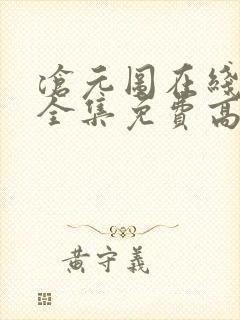 滄元圖在綫
全集免費高
黃守義